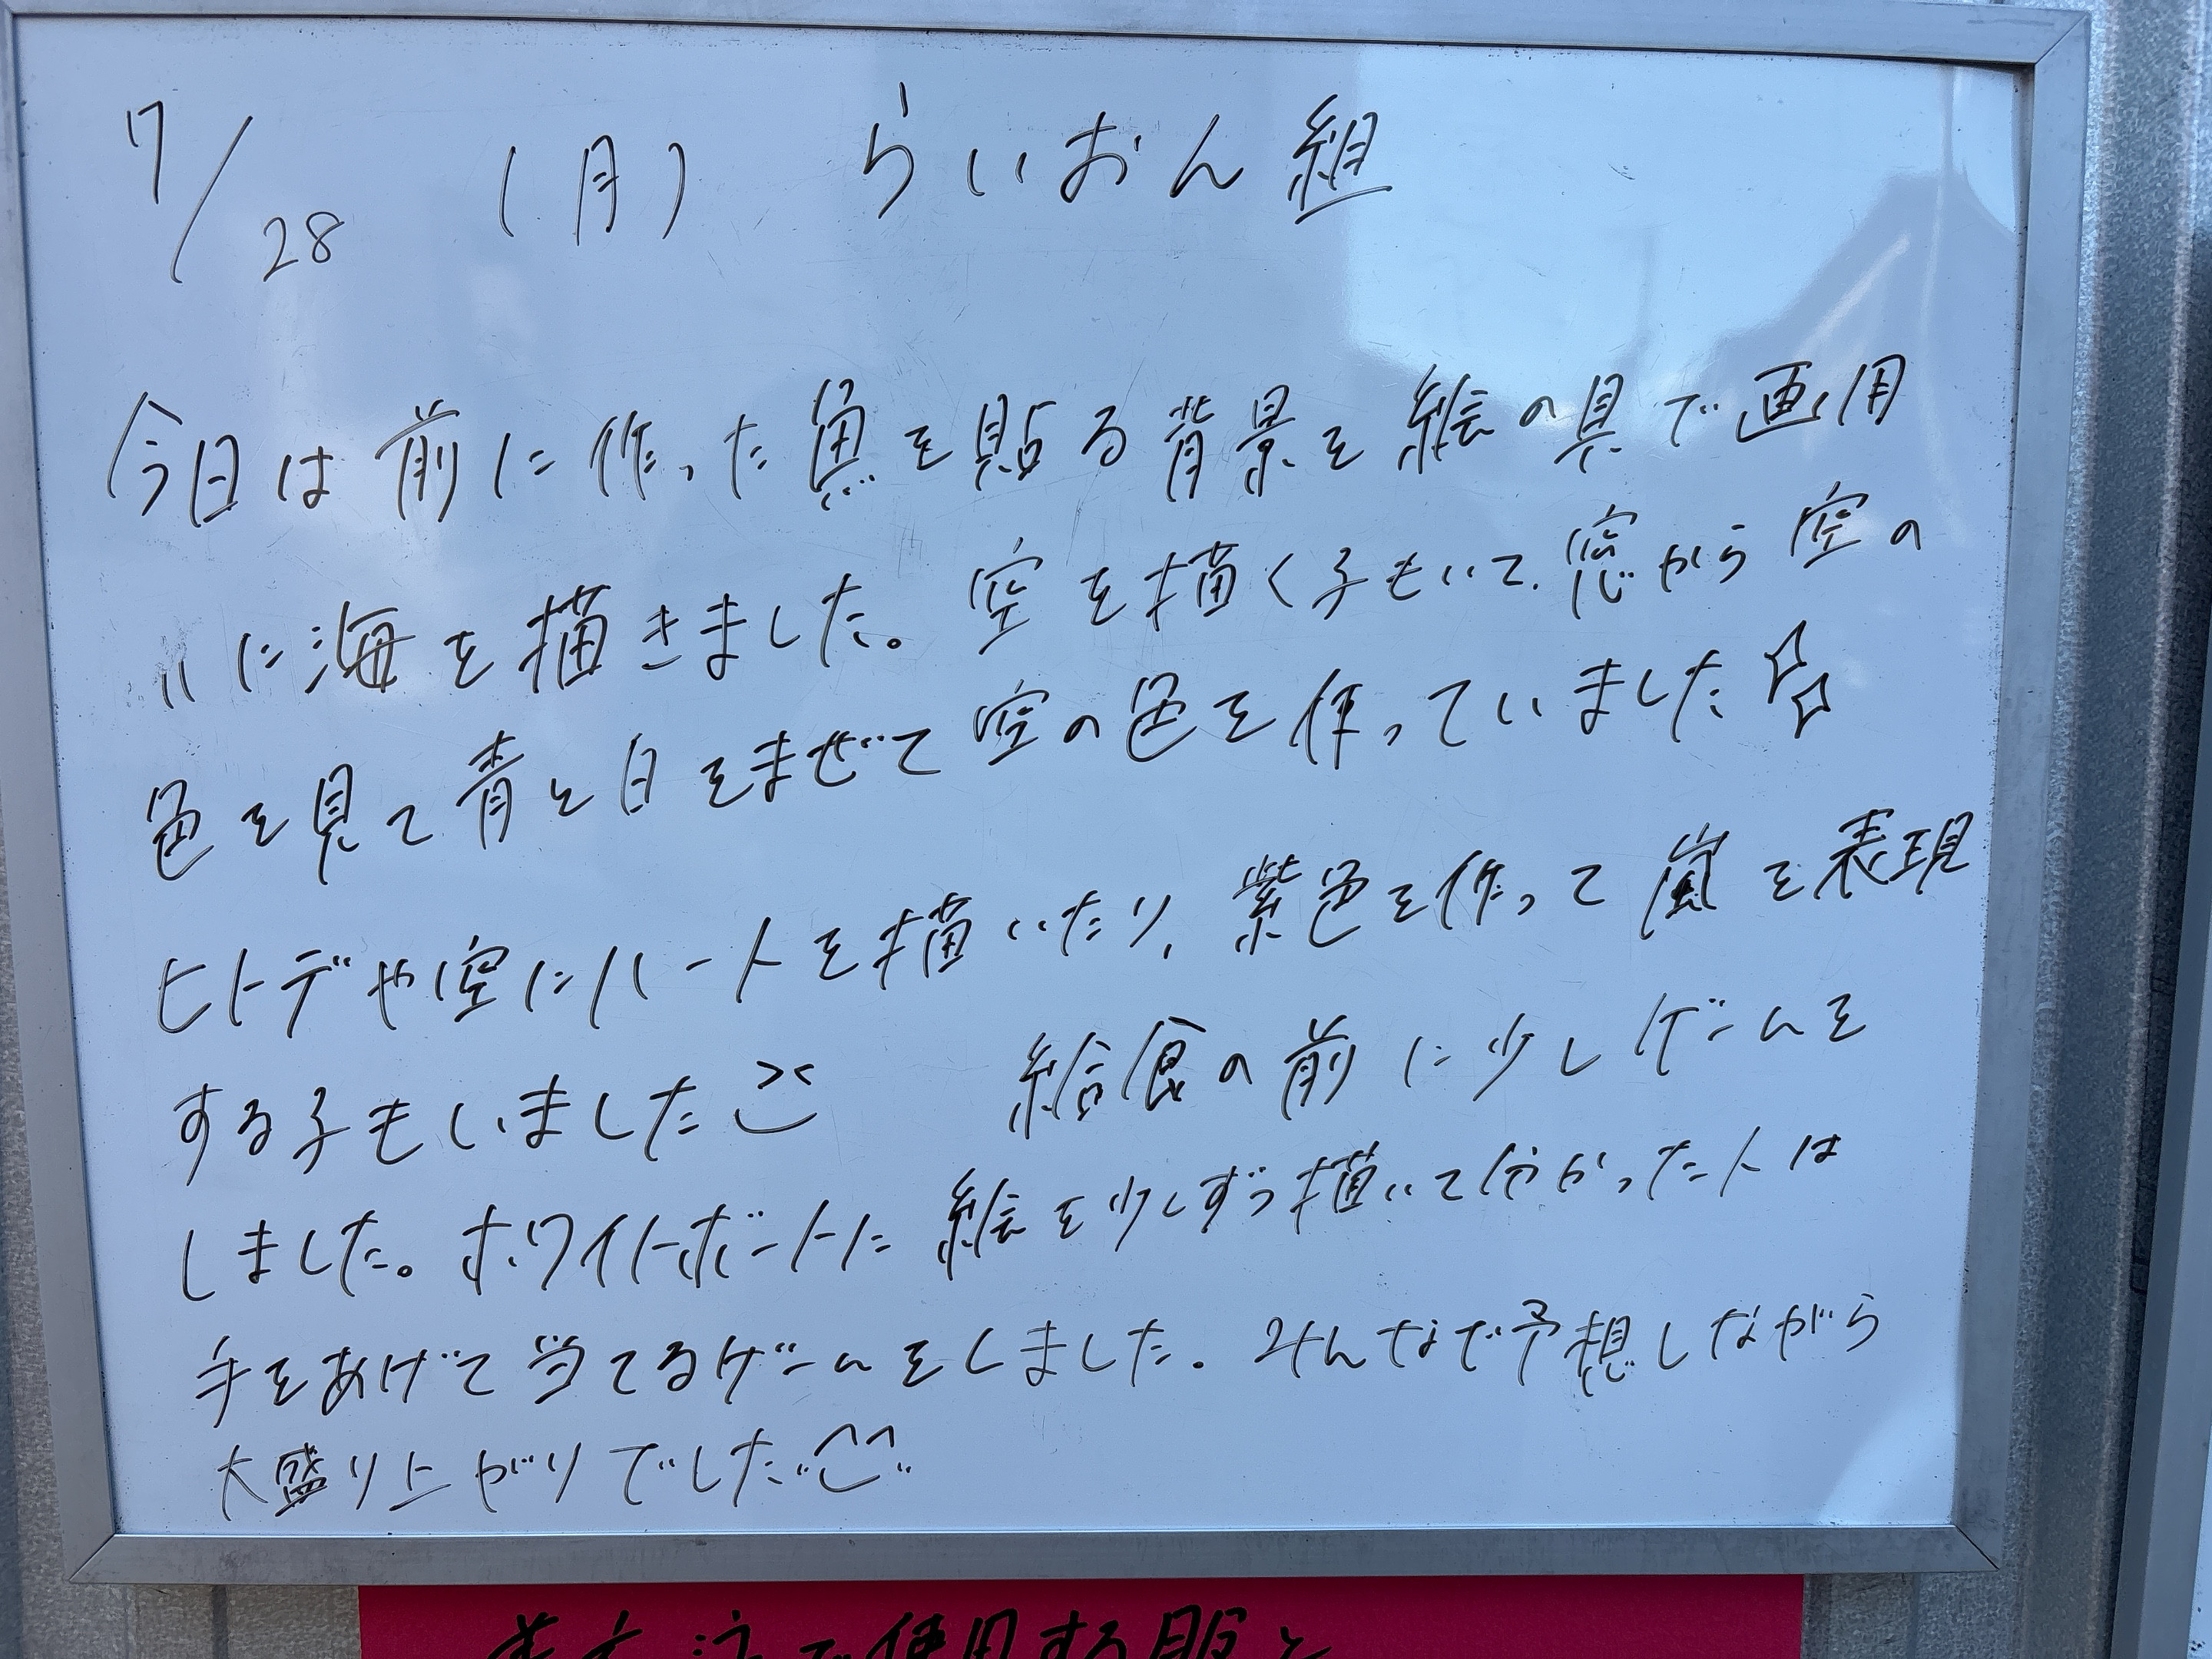 7/28 (月) らいおん組
今日は前に作った魚を貼る背景を絵の具で画用
〃に海を描きました。空を描く子もいて、窓から空の
色を見て青と白をまぜて空の色を作っていました
ヒトデや空にハートを描いたり、紫色を作って嵐を表現
する子もいました 給食の前に少しゲームを
しました。ホワイトボートに絵を少しずつ描いて分かった人は
手をあげて当てるゲームをしました。みんなで予想しながら
大盛り上がりでした
で使用する服と